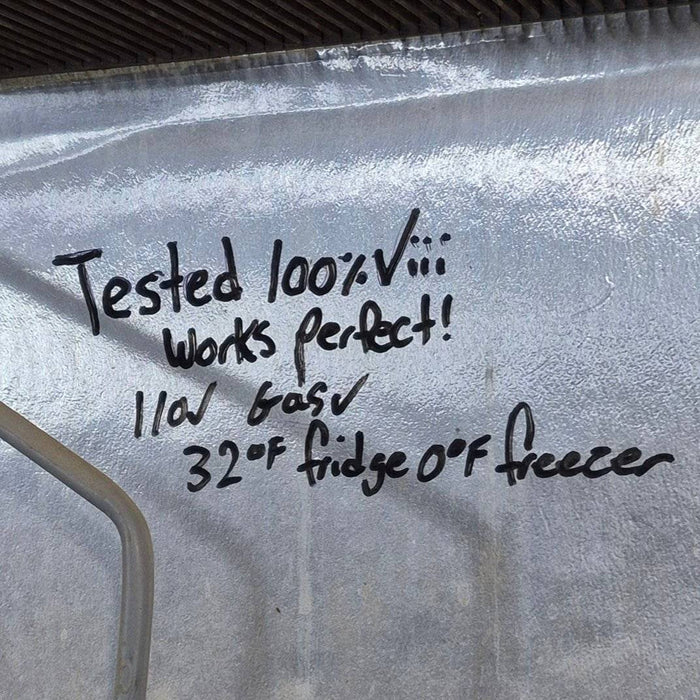 Tested 100%✓iii
Works Perfect!
110✓ Gas✓
32°F fridge 0°F freezer